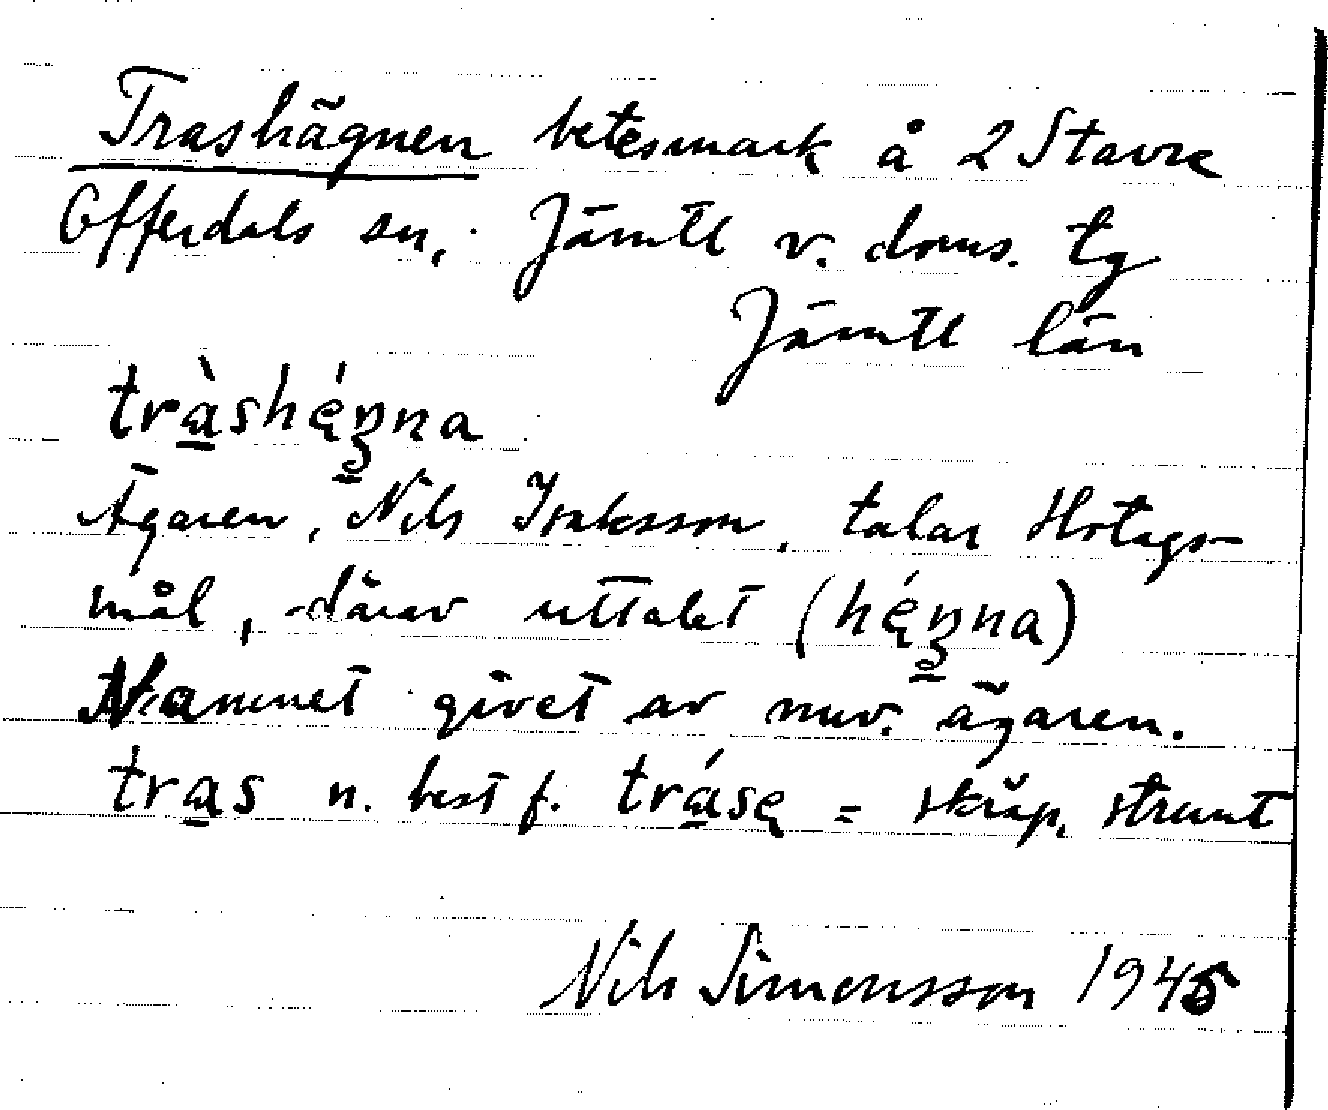 Trashägnen betesmark å 2 Stavre
Offerdals sn, Jämtl v. doms. tg
Jämtl län
tràshę́ŋna
Ägaren, Nils Isaksson, talar Hotags-
mål, därav uttalet (hę́ŋna)
Namnet givet av nuv. ägaren.
tras n. best f. trásę = skräp, strunt
Nils Simonsson 1945